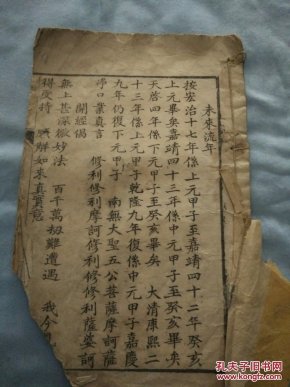 未來流年
按宏治十七年係上元甲子至嘉靖四十二年癸亥
上元畢矣嘉靖四十三年係中元甲子至癸亥畢矣
天啓四年係下元甲子至癸亥畢矣 大清康熙二
十三年係上元甲子乾隆九年復係中元甲子嘉慶
九年仍復下元甲子 南無大聖五公菩薩摩訶薩
淨口業真言 修利修利摩訶修利修修利薩婆訶
開經偈
無上甚深微妙法 百千萬劫難遭遇 我今
得受持 願解如來真實意
孔夫子旧书网